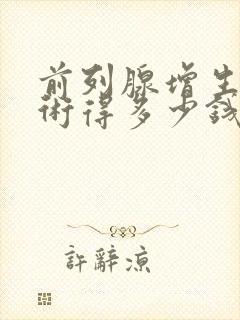 前列腺增生
術得多少钱
許辭凉